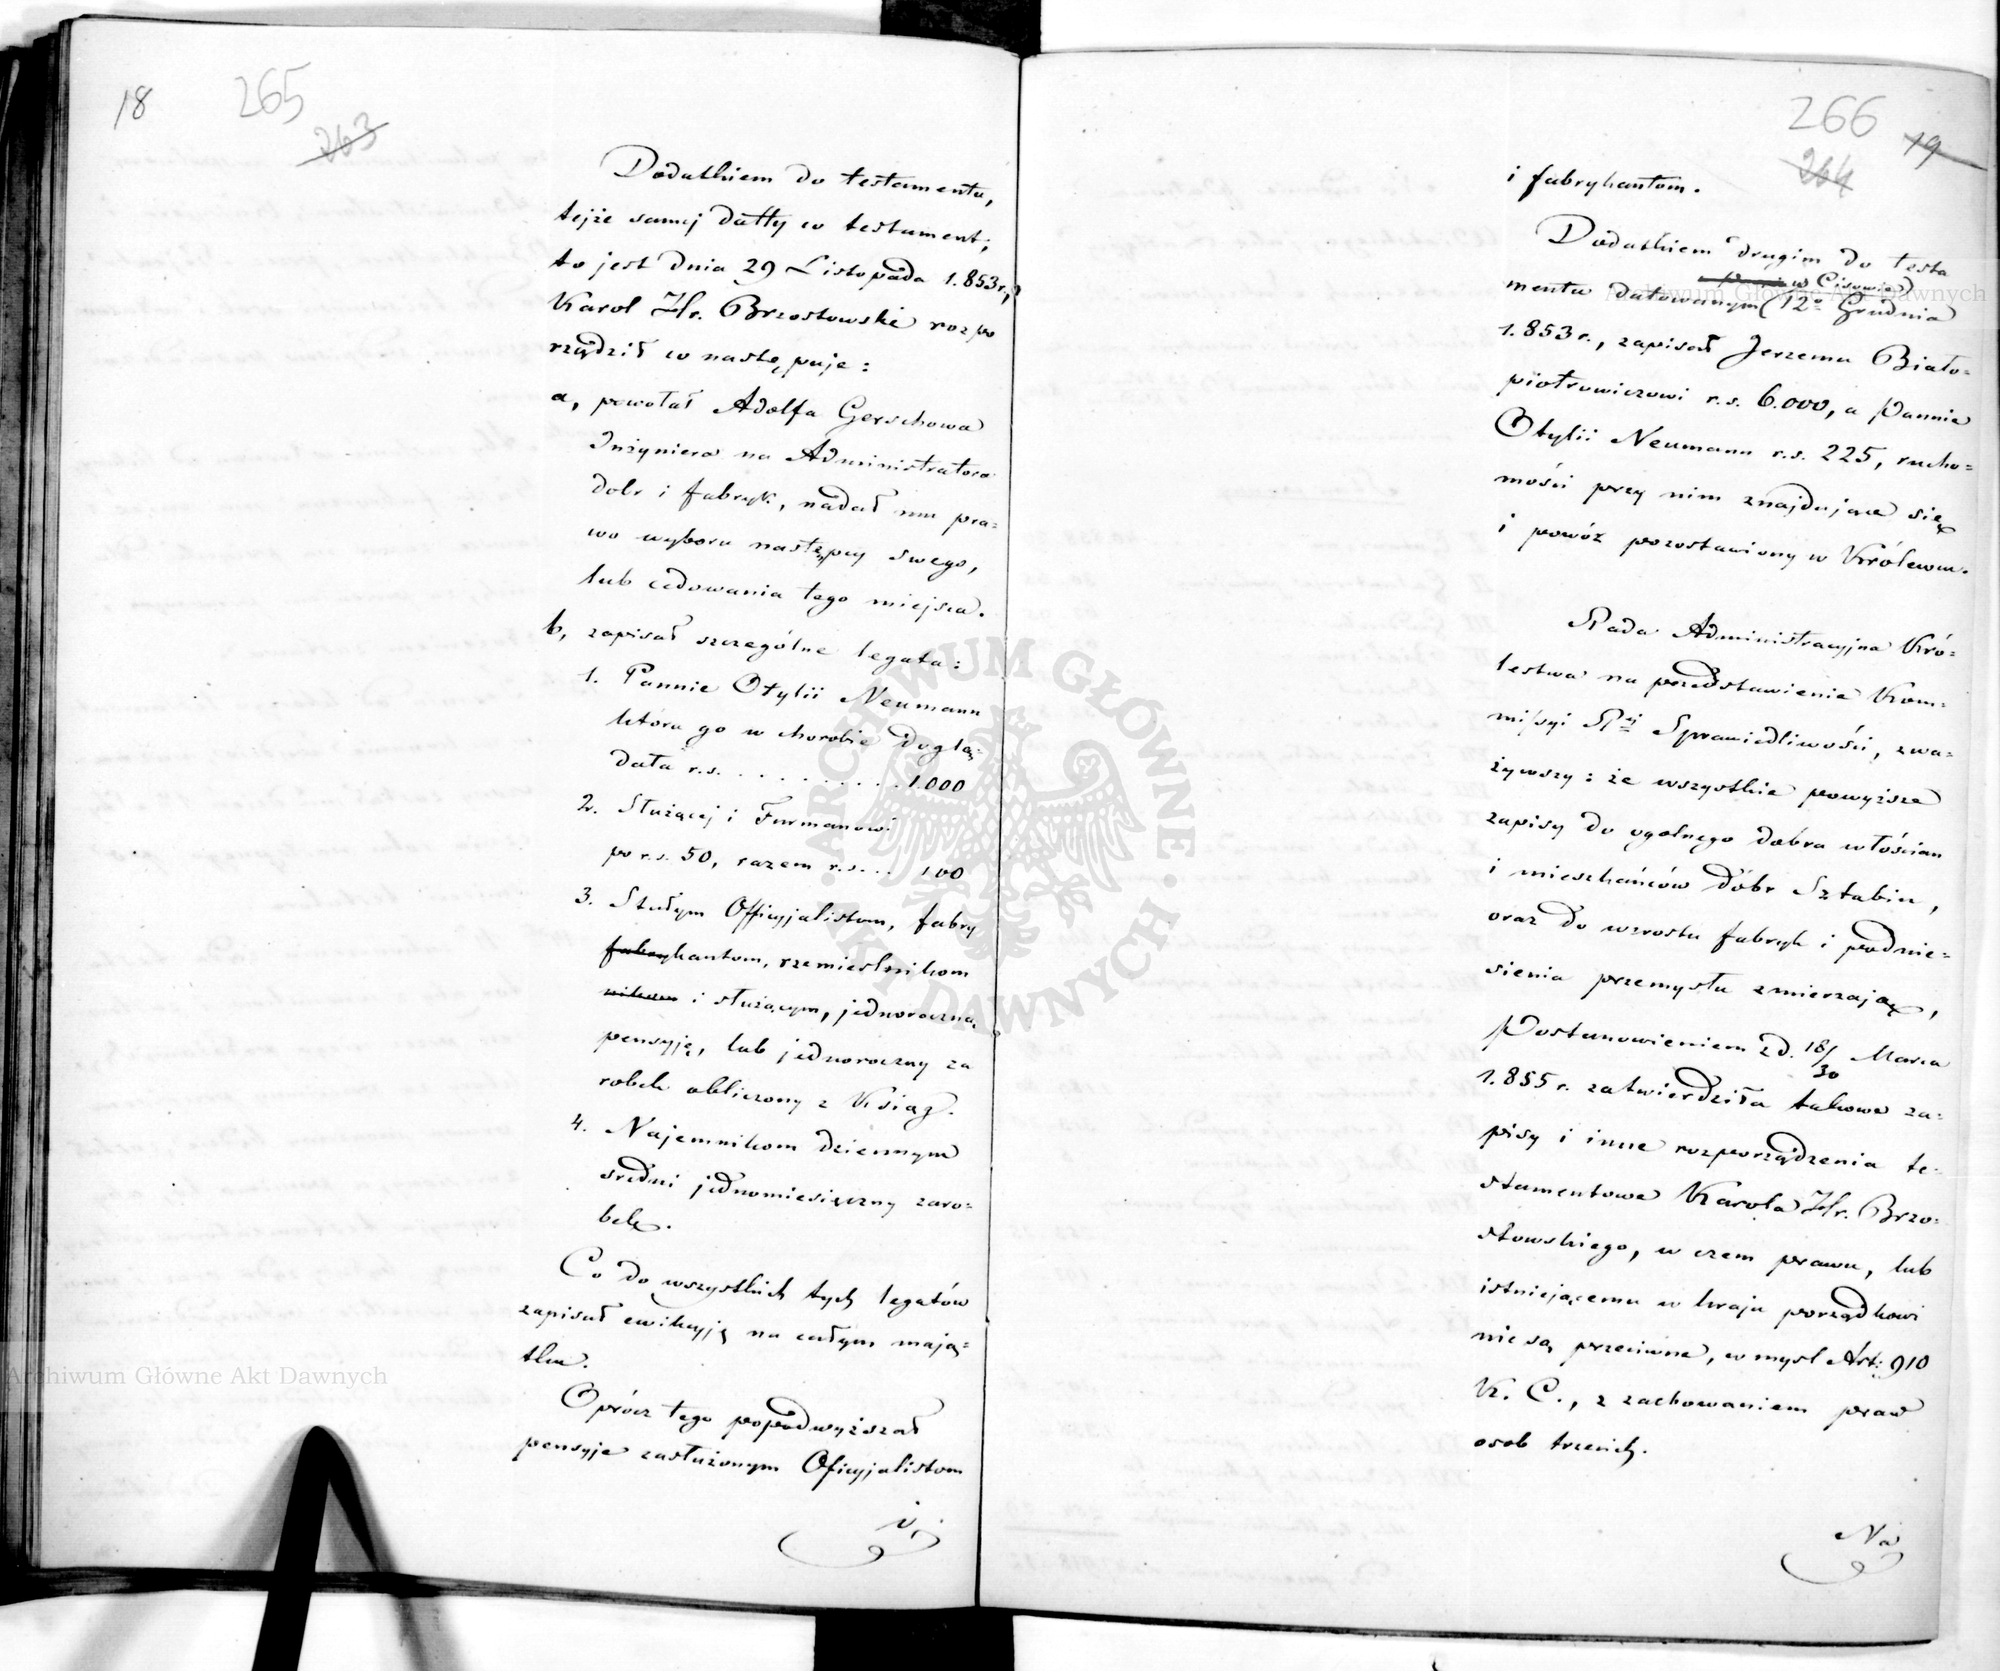 18
265
263
Dodatkiem do testamentu,
tejże samej datty co testament,
to jest dnia 29 Listopada 1.853 r.,
Karol Hr. Brzostowski rozpo
rządził co następuje:
a, powołał Adolfa Gerschowa
Inżyniera na Administratora
dobr i fabryk, nadał mu pra=
wo wyboru następcy swego,
lub cedowania tego miejsca.
b, zapisał szczególne legata:
1. Pannie Otylii Neumann
która go w chorobie doglą=
dała r.s. . . . . . . . . . 1.000
2. Służącej i Furmanowi
po r.s. 50, razem r.s. . . 100
3. Stałym Officyjalistom, fabry
fabrykantom, rzemieslnikom
nikom i służącym, jednoroczną
pensyję, lub jednoroczny za
robek obliczony z Ksiąg.
4. Najemnikom dziennym
sredni jednomiesięczny zaro=
bek.
Co do wszystkich tych legatów
zapisał ewikcyję na całym mają=
tku.
Oprócz tego popodwyższał
pensyje zasłużonym Oficyjalistom
i
266
19
264
i fabrykantom.
Dodatkiem drugim do testa
w Cisowie
mentu datowanym (12o Grudnia
1.853 r., zapisał Jerzemu Biało=
piotrowiczowi r.s. 6.000, a Pannie
Otylii Neumann r.s. 225, rucho=
mości przy nim znajdujące się
i powóz pozostawiony w Królewcu.
Rada Administracyjna Kró=
lestwa na przedstawienie Kom=
missyi Rej Sprawiedliwości, zwa=
żywszy: że wszystkie powyższe
zapisy do ogolnego dobra włościan
i mieszkańców dóbr Sztabin,
oraz do wzrostu fabryk i podnie=
sienia przemysłu zmierzają,
Postanowieniem z d. 18/30 Marca
1.855 r. zatwierdziła takowe za=
pisy i inne rozporządzenia te=
stamentowe Karola Hr. Brzo=
stowskiego, w czem prawu, lub
istniejącemu w kraju porządkowi
nie są przeciwne, w mysl Art: 910
K. C., z zachowaniem praw
osob trzecich.
Na
ARCHIWUM GŁÓWNE AKT DAWNYCH
Archiwum Główne Akt Dawnych
Archiwum Główne Akt Dawnych